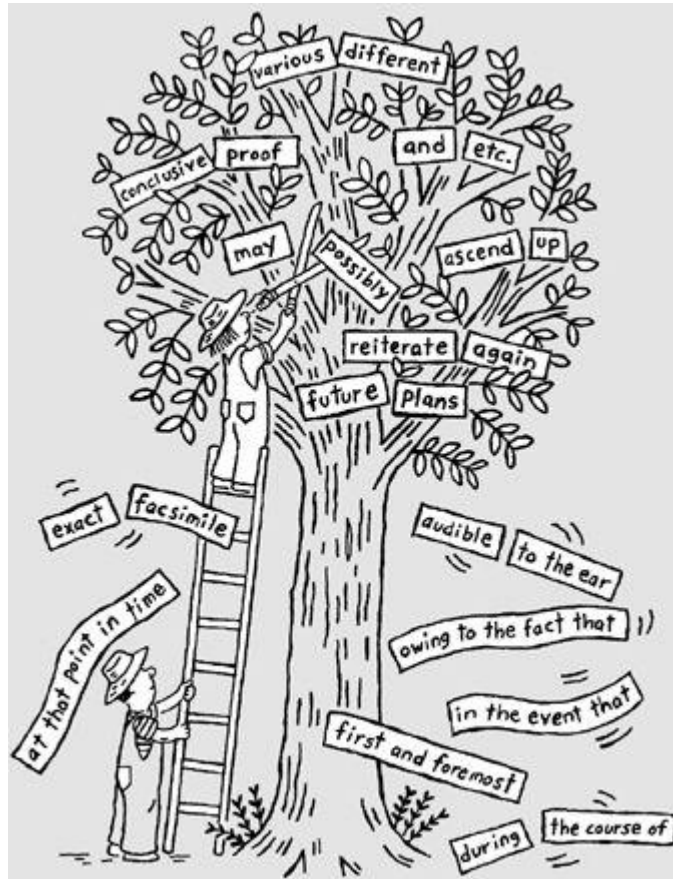 various different
conclusive proof
and etc.
may possibly
ascend up
reiterate again
future plans
exact facsimile
audible to the ear
at that point in time
owing to the fact that
in the event that
first and foremost
during the course of